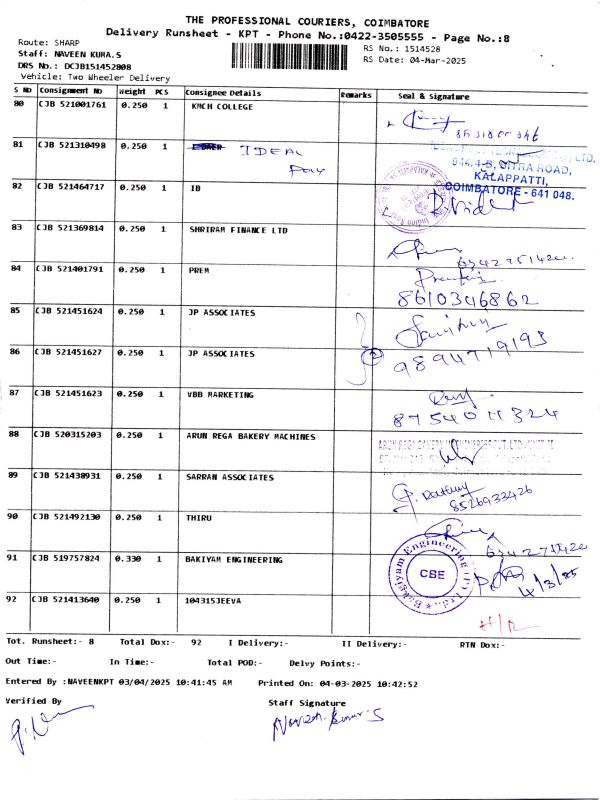 THE PROFESSIONAL COURIERS, COIMBATORE
Delivery Runsheet - KPT - Phone No.:0422-3505555 - Page No.:8
Route: SHARP
RS No.: 1514528
Staff: NAVEEN KUMA.S
RS Date: 04-Mar-2025
DRS No.: DCJB151452808
Vehicle: Two Wheeler Delivery
S No Consignment No Weight PCS Consignee Details Remarks Seal & signature
80 CJB 521001761 0.250 1 KMCH COLLEGE
81 CJB 521310498 0.250 1 IDEAL
pay
944,4-B, CITRA ROAD,
KALAPPATTI,
COIMBATORE - 641 048.
82 CJB 521464717 0.250 1 IB
83 CJB 521369814 0.250 1 SHRIRAM FINANCE LTD
84 CJB 521401791 0.250 1 PREM
8610346862
85 CJB 521451624 0.250 1 JP ASSOCIATES
86 CJB 521451627 0.250 1 JP ASSOCIATES 2
9894719193
87 CJB 521451623 0.250 1 VBB MARKETING
88 CJB 520315203 0.250 1 ARUN REGA BAKERY MACHINES
89 CJB 521438931 0.250 1 SARRAN ASSOCIATES
8526933426
90 CJB 521492130 0.250 1 THIRU
91 CJB 519757824 0.330 1 BAKIYAM ENGINEERING
Bakiyam Engineering (P) Ltd.,
CBE
4/3/25
92 CJB 521413640 0.250 1 104315JEEVA
Tot. Runsheet:- 8 Total Dox:- 92 I Delivery:- II Delivery:- RTN Dox:-
Out Time:- In Time:- Total POD:- Delvy Points:-
Entered By :NAVEENKPT 03/04/2025 10:41:45 AM Printed On: 04-03-2025 10:42:52
Verified By Staff Signature
Naveen Kumar.S